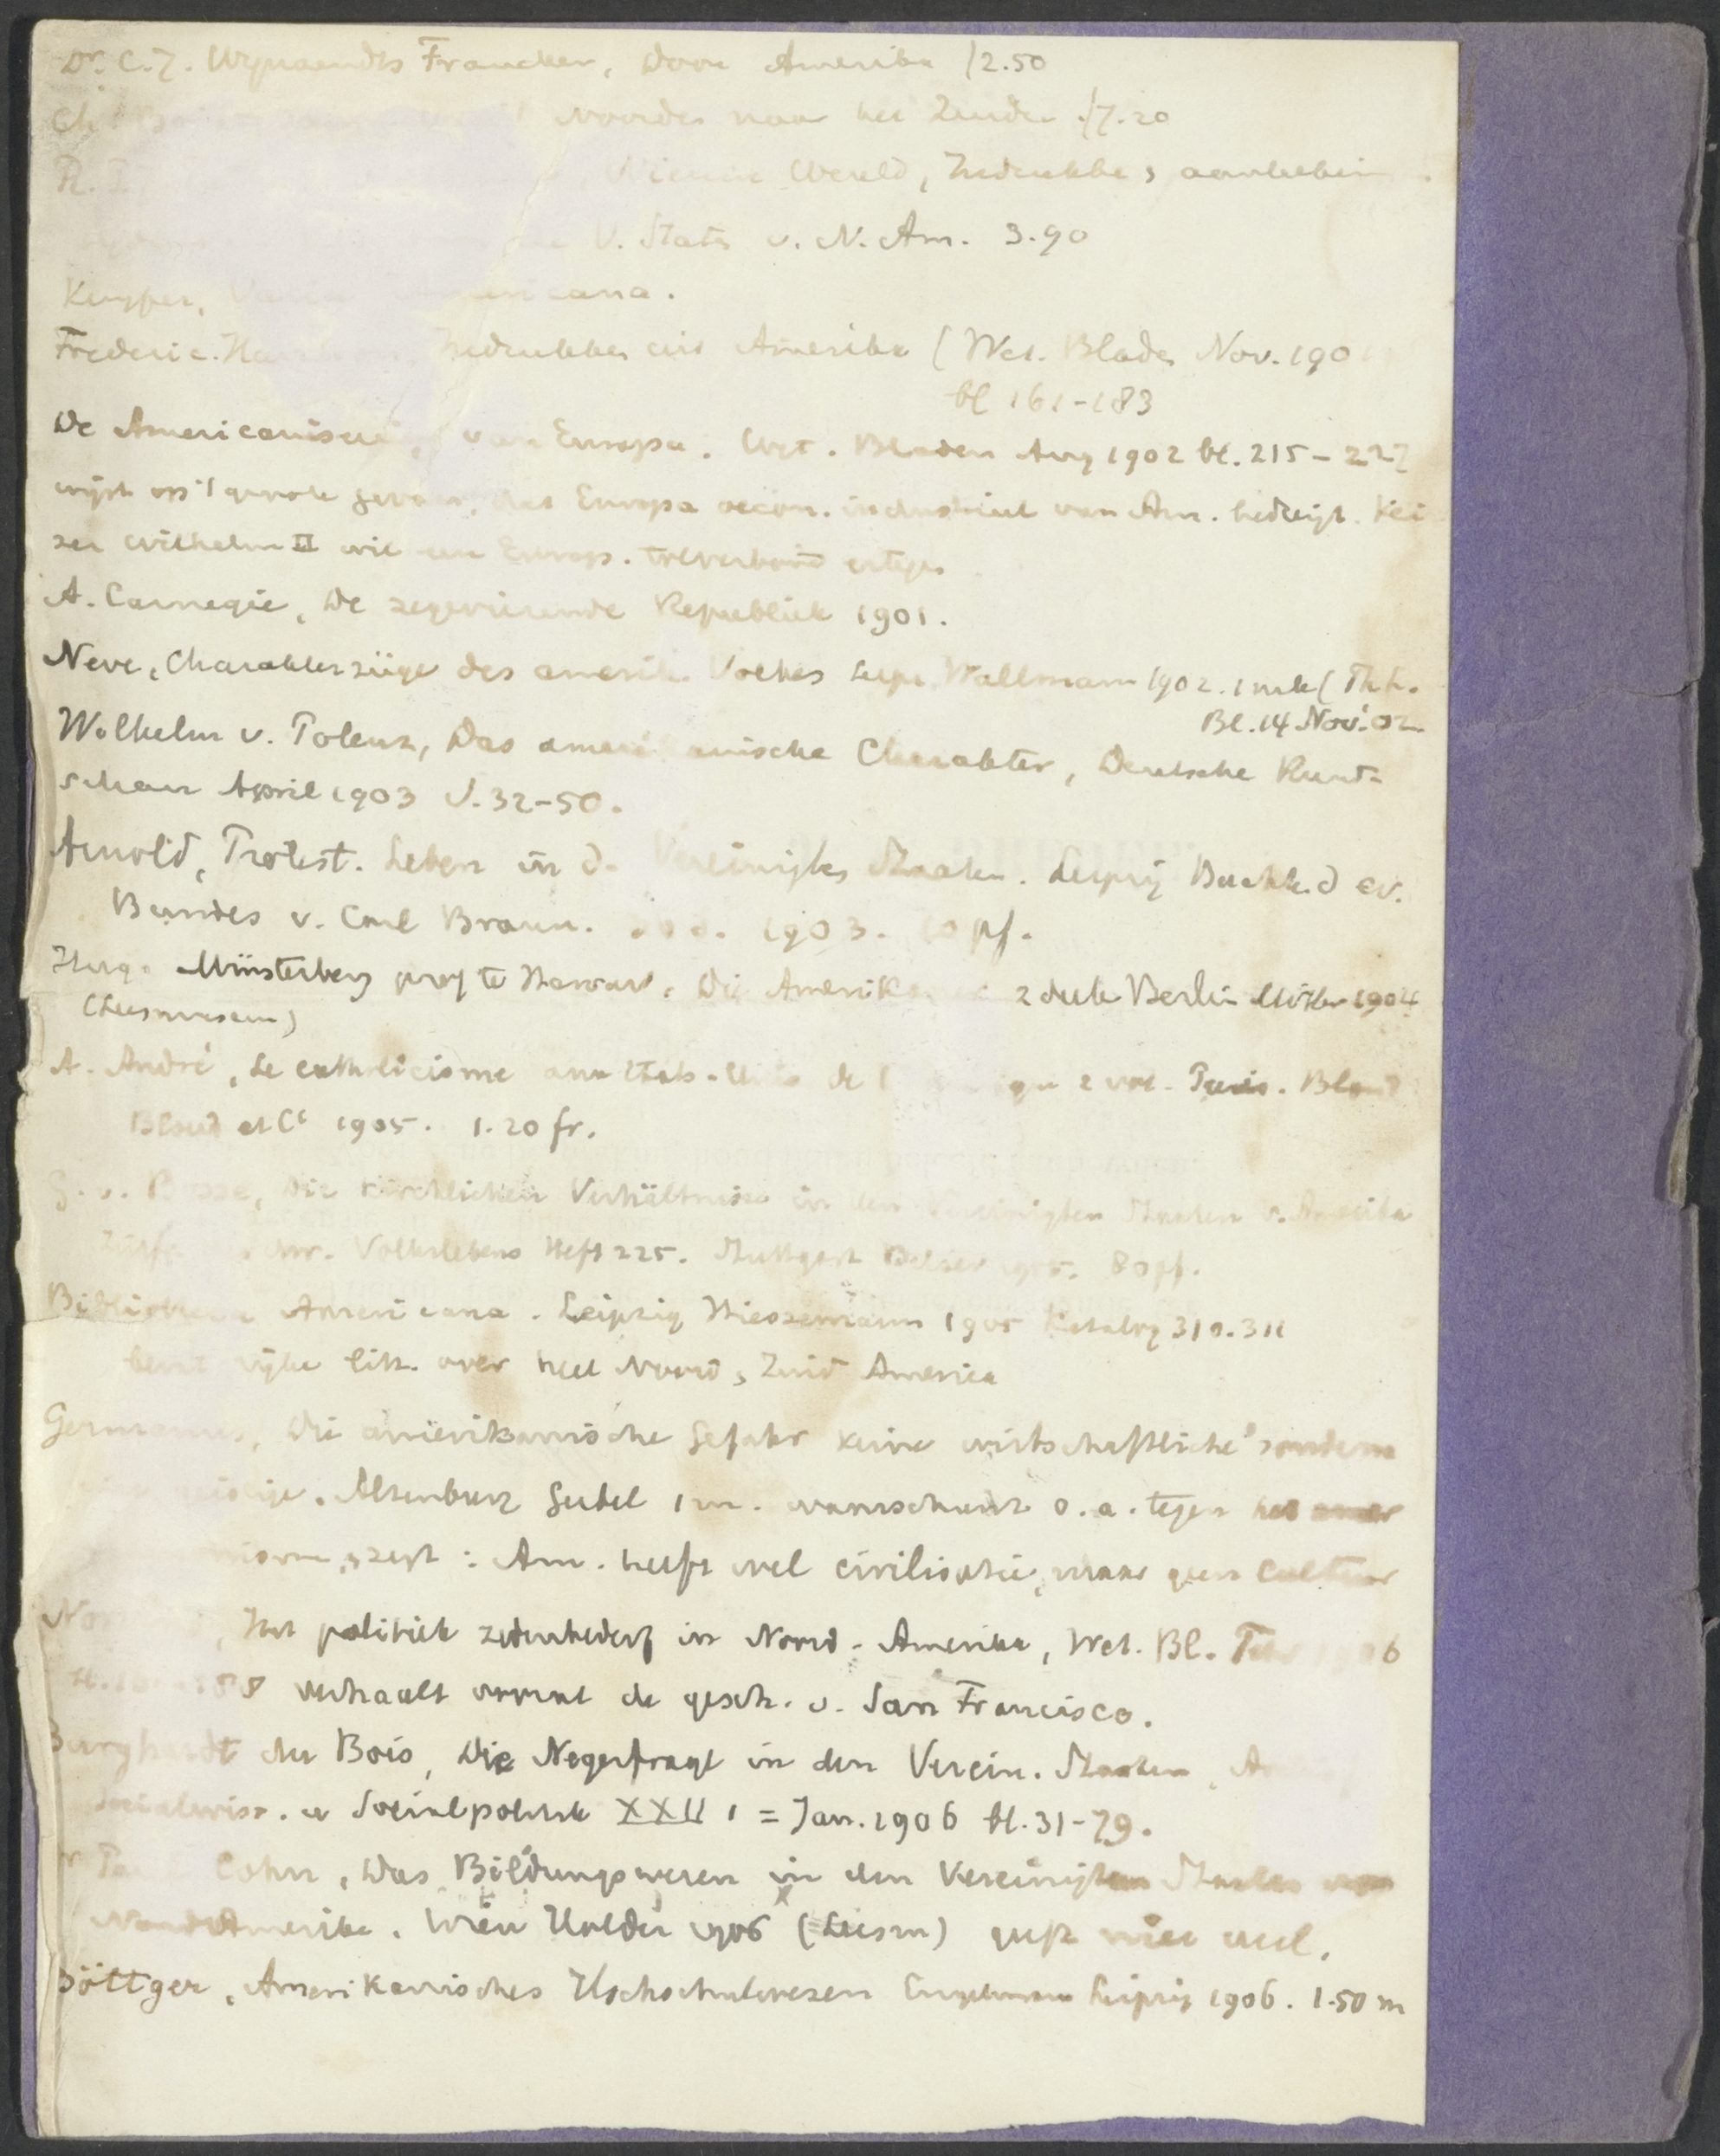 Dr. C. J. Wynaendts Francken, Door Amerika f 2.50
Noorden naar het Zuiden f 7.20
Nieuwe Wereld, Indrukken & aanteekenin
V. Staten v. N. Am. 3.90
Kuyper, Varia Americana.
Frederic Har Indrukken uit Amerika (Wet. Bladen Nov. 190
bl 161-183
De Americaniseering van Europa. Wet. Bladen Aug 1902 bl. 215-227
wijst op 't groote gevaar, dat Europa oecon. industrieel van Am. bedreigt. Kei
zer Wilhelm II wil een Europ. tolverbond ertegen
A. Carnegie, De zegevierende Republiek 1901.
Neve, Charakterzüge des amerik. Volkes Leipz. Wallmann 1902. 1 mk (Th.
Bl. 14 Nov. 02
Wilhelm v. Polenz, Das amerikanische Charakter, Deutsche Rund-
schau April 1903 S. 32-50.
Arnold, Protest. Leben in d. Vereinigten Staaten. Leipzig Buchh. d ev.
Bundes v. Carl Braun. 1903. pf.
Hugo Münsterberg prof te Harvard, Die Amerikaner 2 deele Berlin Mittler 1904
(Leesmuseum)
A. André, Le catholicisme aux Etats-Unis de l 2 vol. Paris. Bloud
Bloud et Ce 1905. 1.20 fr.
G. v. Bosse, Die kirchlichen Verhältnisse in den Vereinigten Staaten v. Amerika
Zeitfr. chr. Volkslebens Heft 225. Stuttgart Belser 1905. 80 pf.
Bibliotheca Americana. Leipzig Hiersemann 1905 Katalog 310. 311
bevat rijke litt. over heel Noord & Zuid America
Germanus, Die amerikanische Gefahr keine wirtschaftliche sondern
geistige. Altenburg Geibel 1 m. waarschuwt o. a. tegen het amer
nisme, & zegt: Am. heeft wel civilisatie, maar geen cultuur
Het politiek zedenbederf in Noord-Amerika, Wet. Bl. Febr 1906
verhaalt vooral de gesch. v. San Francisco.
Burghardt du Bois, Die Negerfrage in den Verein. Staaten,
Socialwiss. u Socialpolitik XXII 1 = Jan. 1906 bl. 31-79.
Cohn, Das Bildungswesen in den Vereinigten Staaten von
Nordamerika. Wien Hölder 1906 (Leesm) geeft niet veel.
Böttger, Amerikanisches Hochschulwesen Engelmann Leipzig 1906. 1.50 m